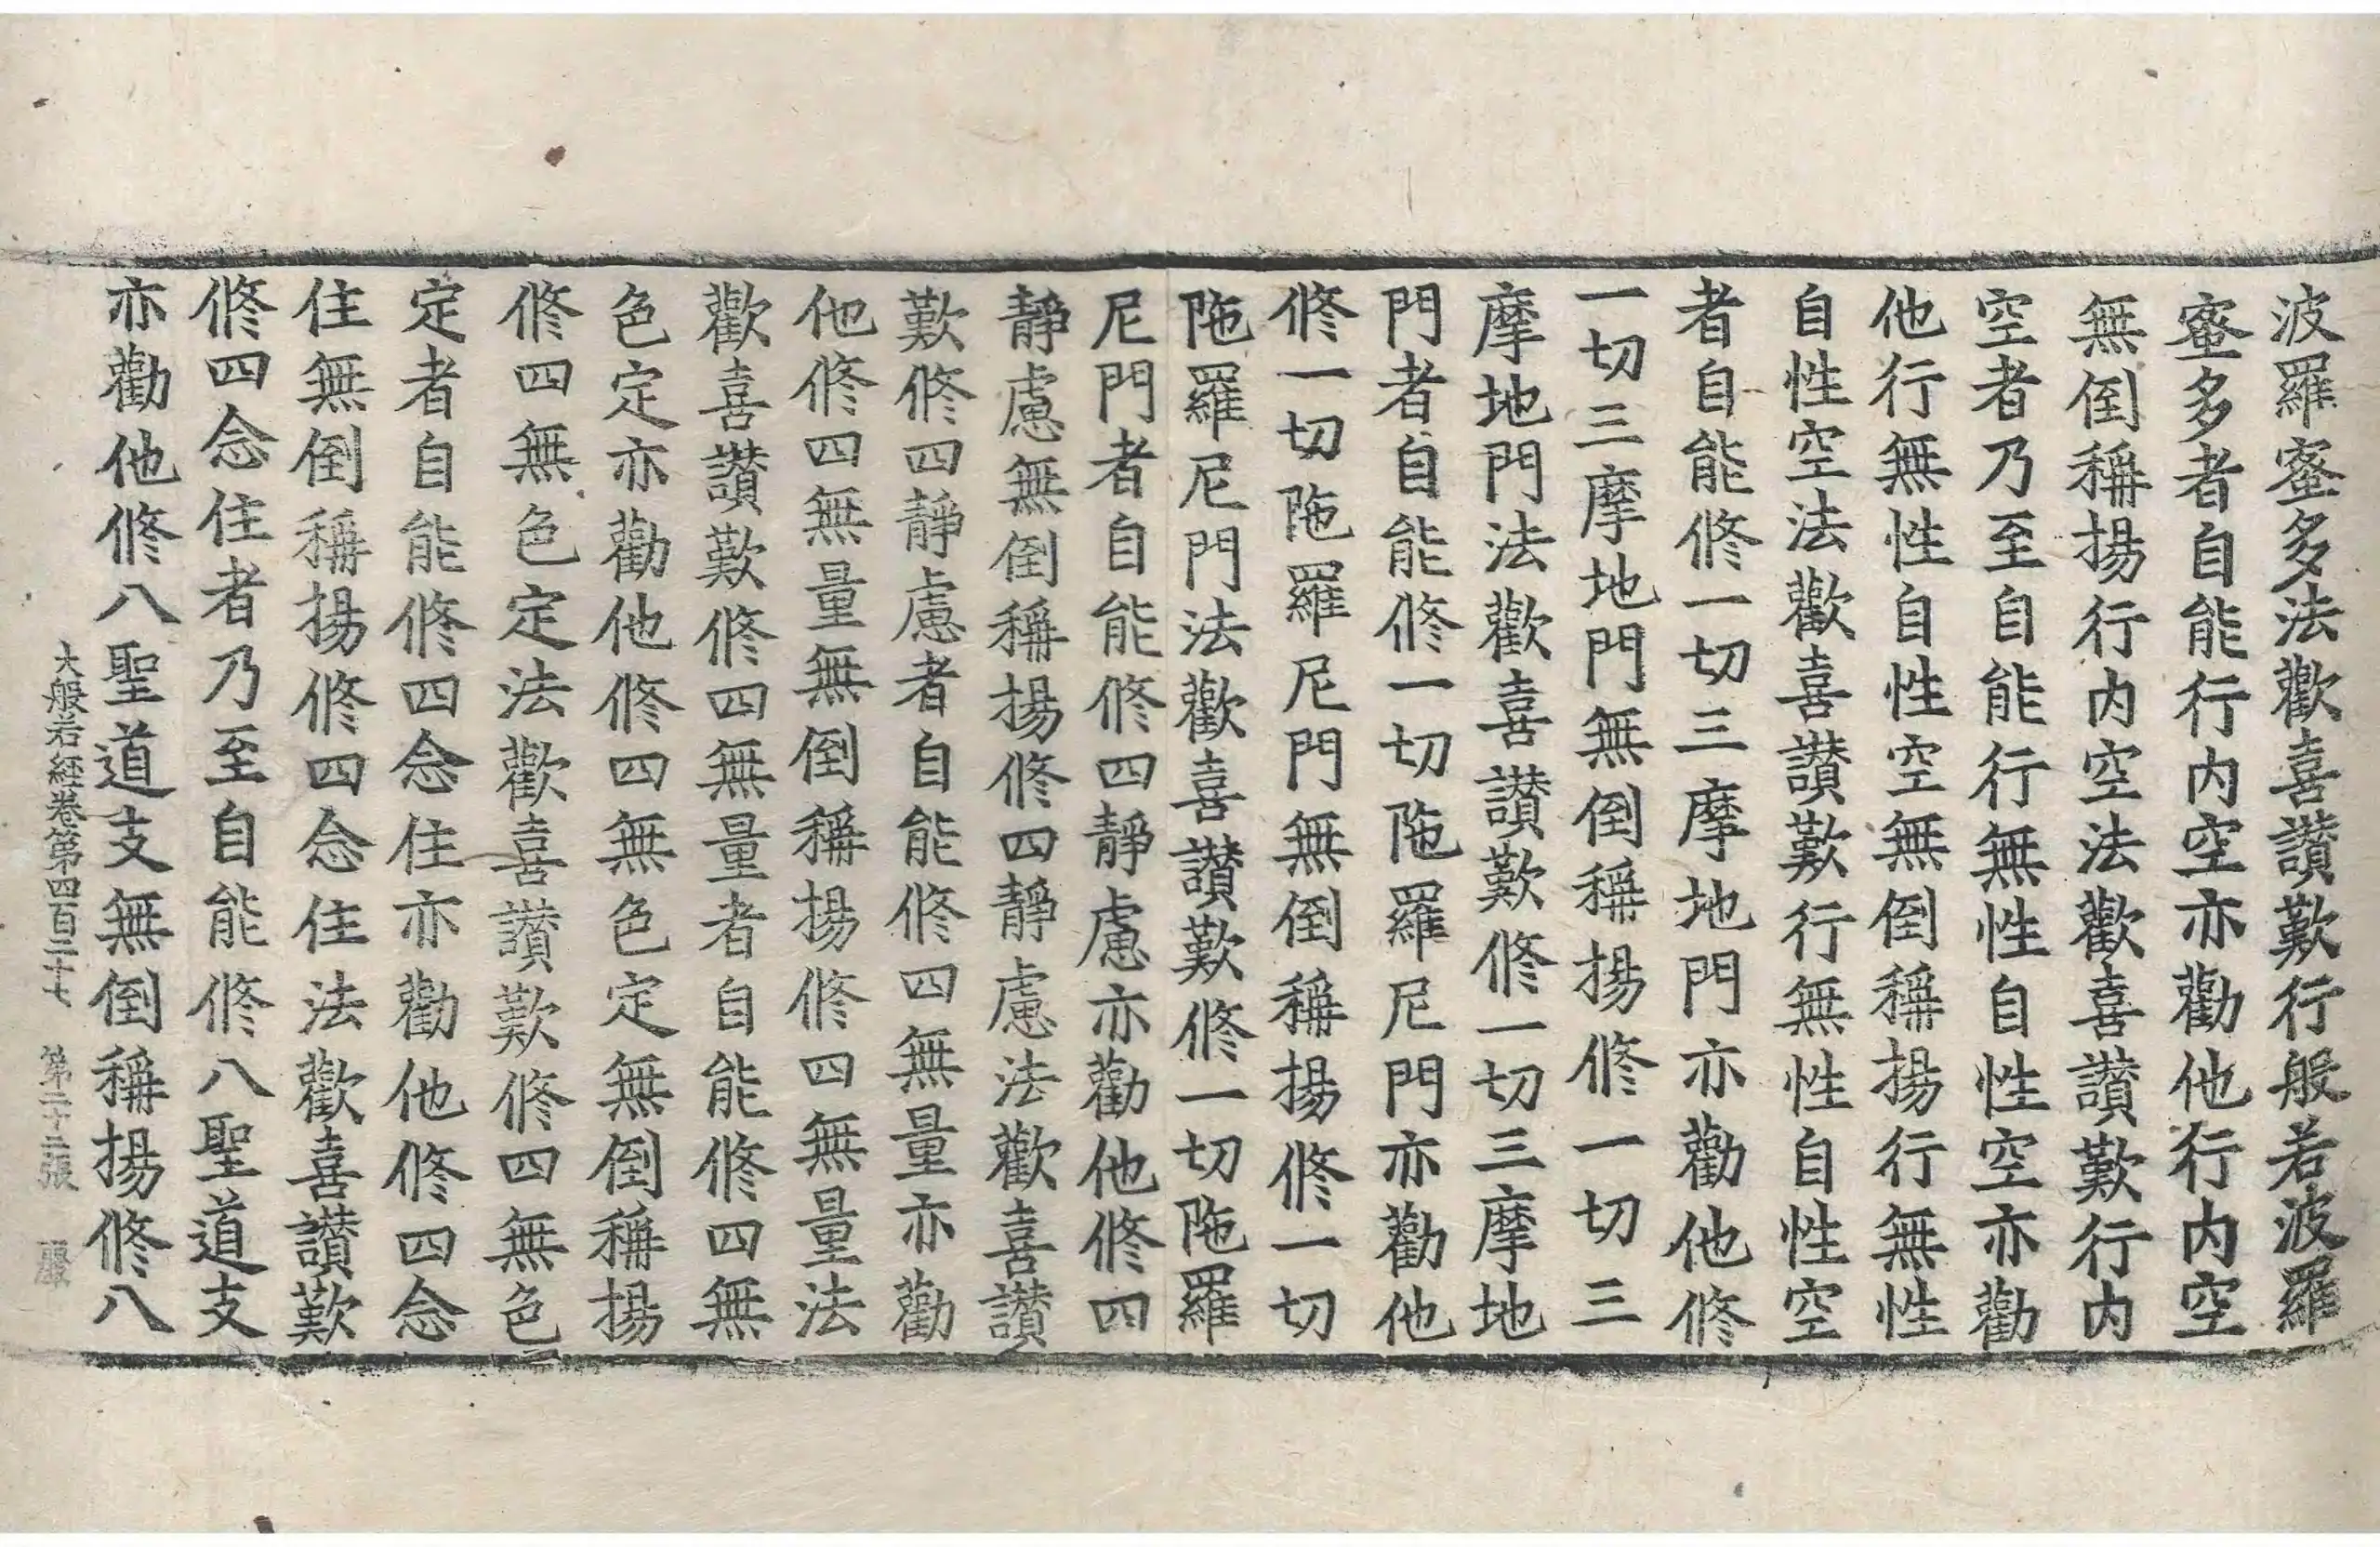 波羅蜜多法歡喜讚歎行般若波羅
蜜多者自能行内空亦勸他行内空
無倒稱揚行内空法歡喜讚歎行内
空者乃至自能行無性自性空亦勸
他行無性自性空無倒稱揚行無性
自性空法歡喜讚歎行無性自性空
者自能修一切三摩地門亦勸他修
一切三摩地門無倒稱揚修一切三
摩地門法歡喜讚歎修一切三摩地
門者自能修一切陁羅尼門亦勸他
修一切陁羅尼門無倒稱揚修一切
陁羅尼門法歡喜讚歎修一切陁羅
尼門者自能修四靜慮亦勸他修四
靜慮無倒稱揚修四靜慮法歡喜讚
歎修四靜慮者自能修四無量亦勸
他修四無量無倒稱揚修四無量法
歡喜讚歎修四無量者自能修四無
色定亦勸他修四無色定無倒稱揚
修四無色定法歡喜讚歎修四無色
定者自能修四念住亦勸他修四念
住無倒稱揚修四念住法歡喜讚歎
修四念住者乃至自能修八聖道支
亦勸他修八聖道支無倒稱揚修八
大般若經卷第四百二十七 第二十二張